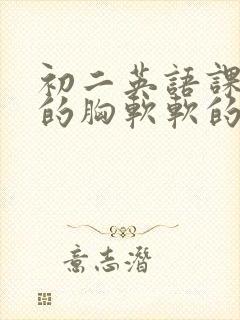 初二英語課
的胸軟軟的
意志潛